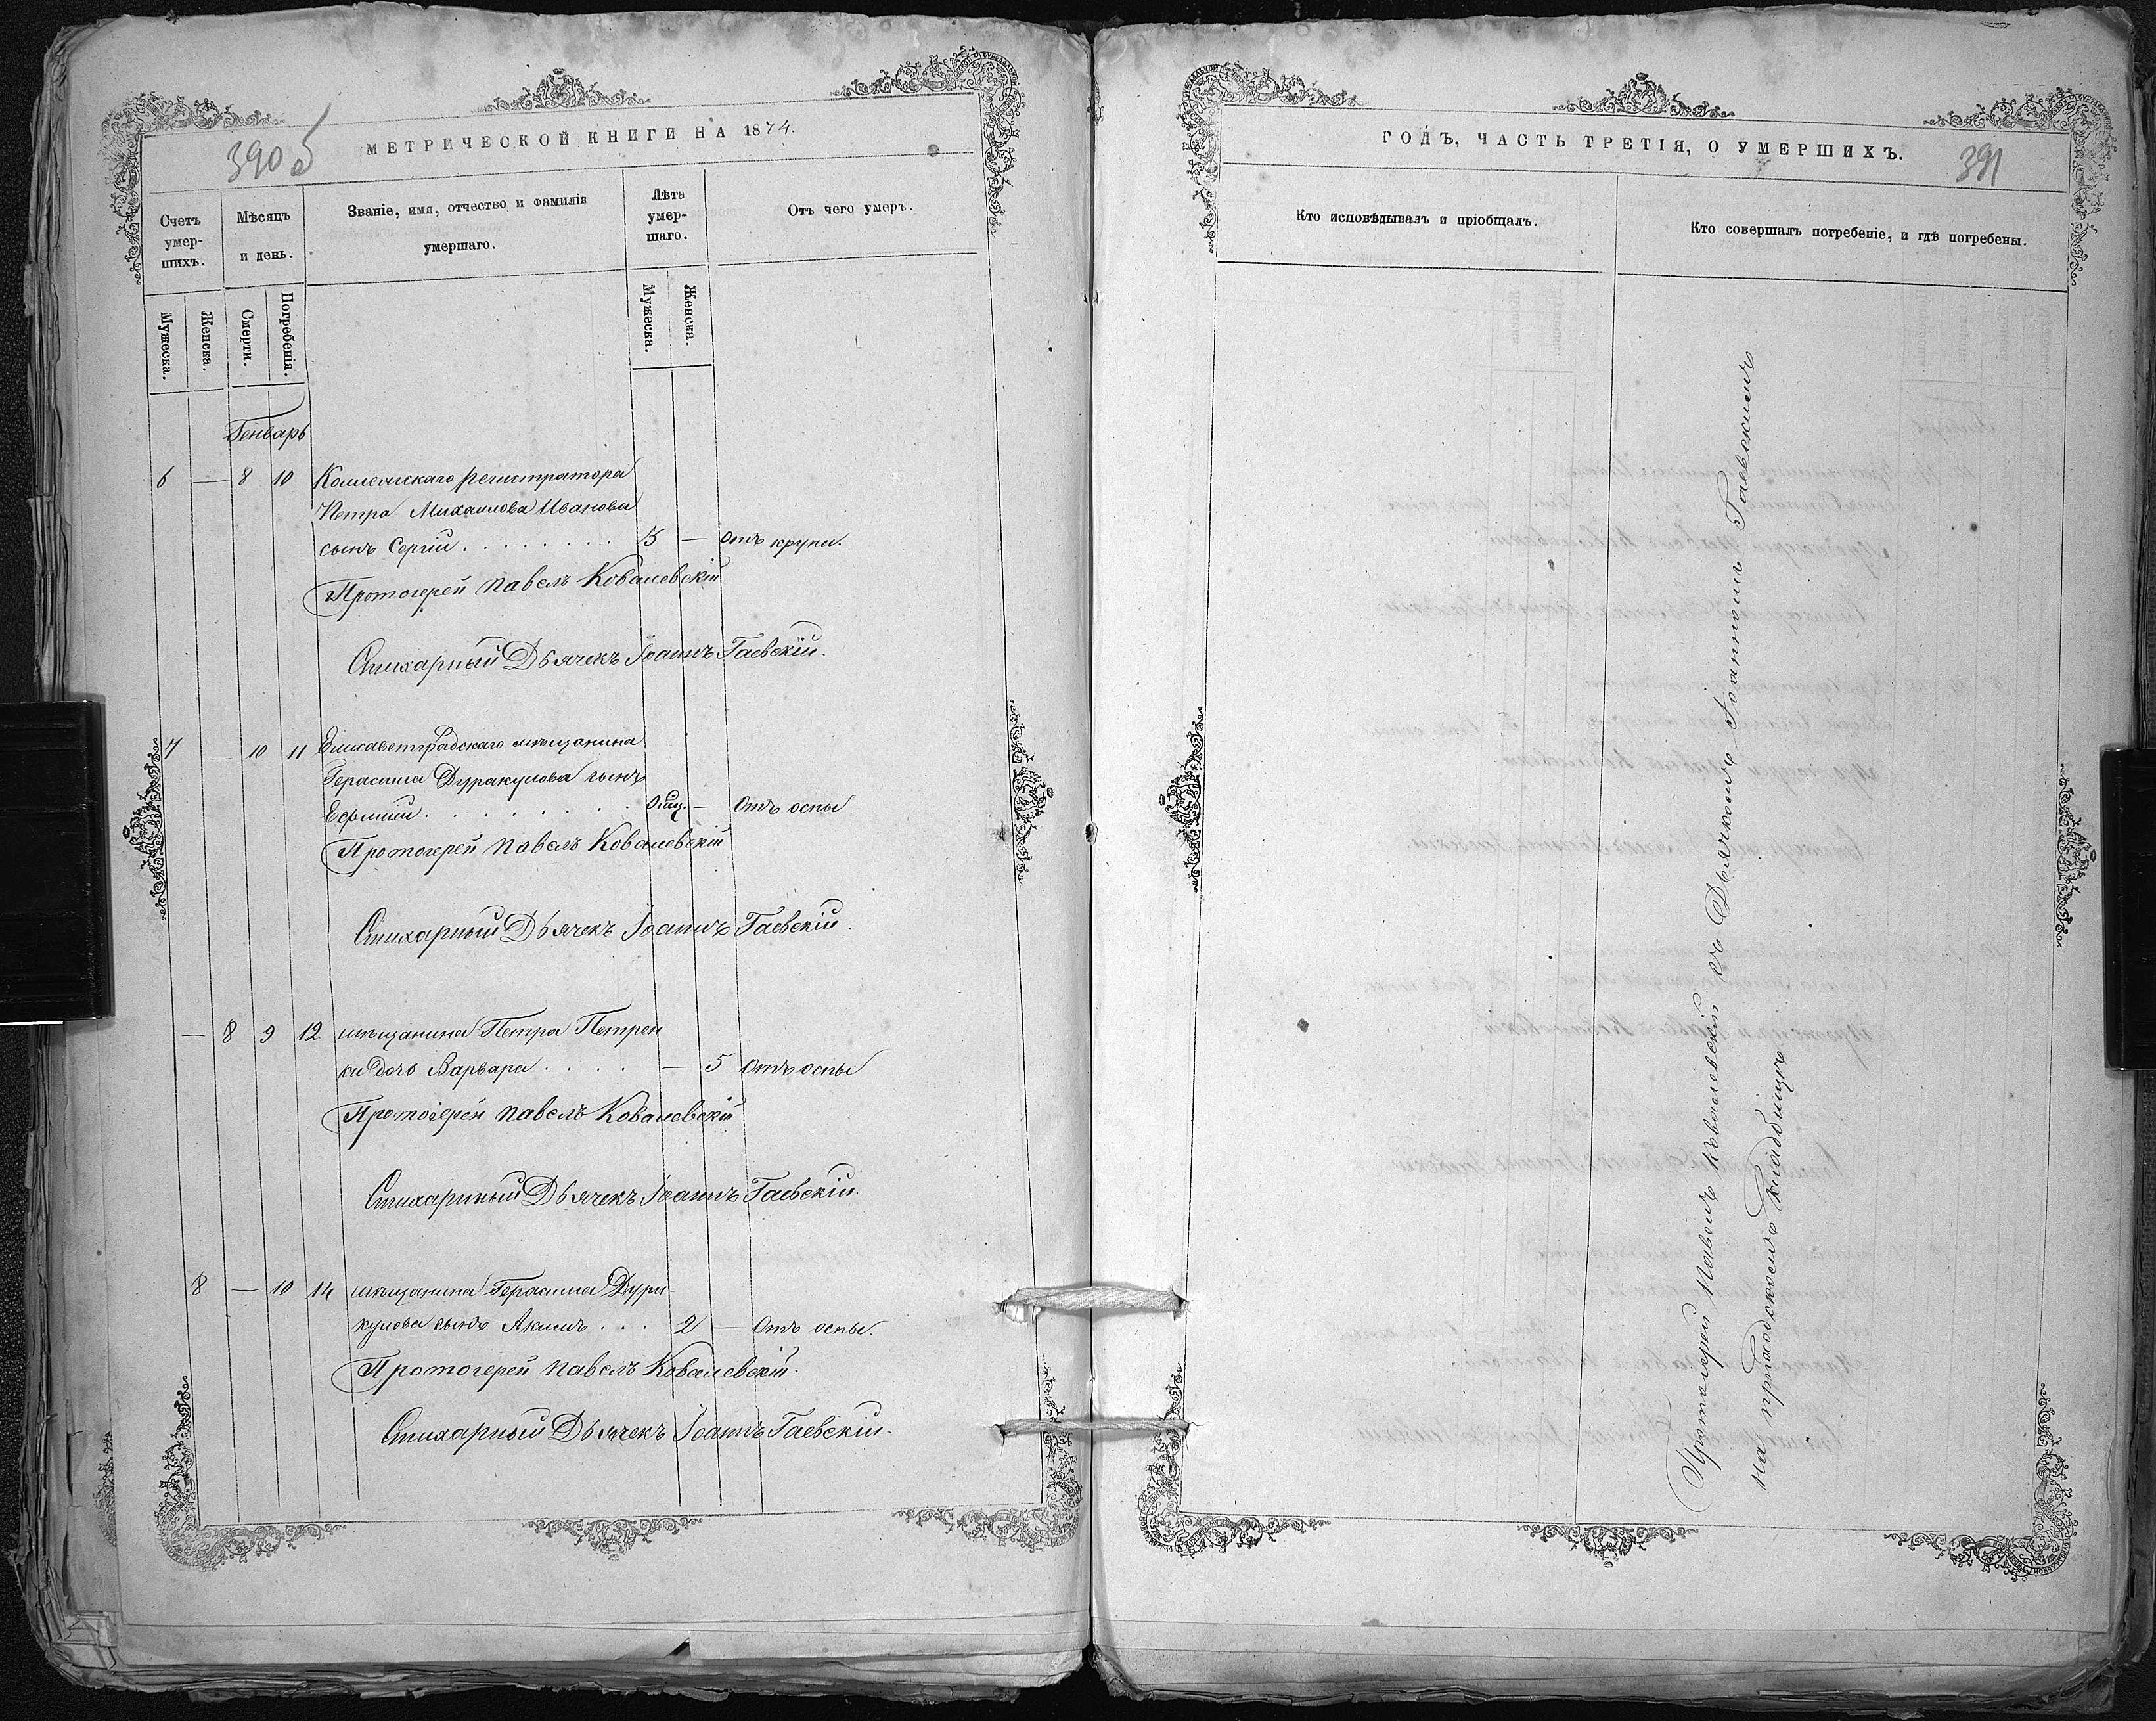 МЕТРИЧЕСКОЙ КНИГИ НА 1874.
390 б
Счетъ умер-шихъ.
Мѣсяцъ и день.
Званіе, имя, отчество и фамилія умершаго.
Лѣта умер-шаго.
Отъ чего умеръ.
Мужеска.
Женска.
Смерти.
Погребенія.
Мужеска.
Женска.
Генварь
6 — 8 10 Коллежскаго регистратора
Петра Михаилова Иванова
сынъ Сергій . . . . . . . . 3 — Отъ крупа.
Протоіерей Павелъ Ковалевскій
Стихарный Дьячекъ Іоаннъ Гаевскій.
7 — 10 11 Елисаветградскаго мѣщанина
Герасима Дуракулова сынъ
Ефимій . . . . . . . — Отъ оспы
Протоіерей Павелъ Ковалевскій
Стихарный Дьячекъ Іоаннъ Гаевскій.
— 8 9 12 мѣщанина Петра Петрен
ки дочь Варвара . . . . — 5 Отъ оспы
Протоіерей Павелъ Ковалевскій
Стихарный Дьячекъ Іоаннъ Гаевскій.
8 — 10 14 мѣщанина Герасима Дура-
кулова сынъ Акимъ . . . 2 — Отъ оспы.
Протоіерей Павелъ Ковалевскій.
Стихарный Дьячекъ Іоаннъ Гаевскій.
ГОДЪ, ЧАСТЬ ТРЕТІЯ, О УМЕРШИХЪ.
391
Кто исповѣдывалъ и пріобщалъ.
Кто совершалъ погребеніе, и гдѣ погребены.
Протоіерей Павелъ Ковалевскій съ Дьячкомъ Іоанномъ Гаевскимъ
на приходскомъ кладбищѣ